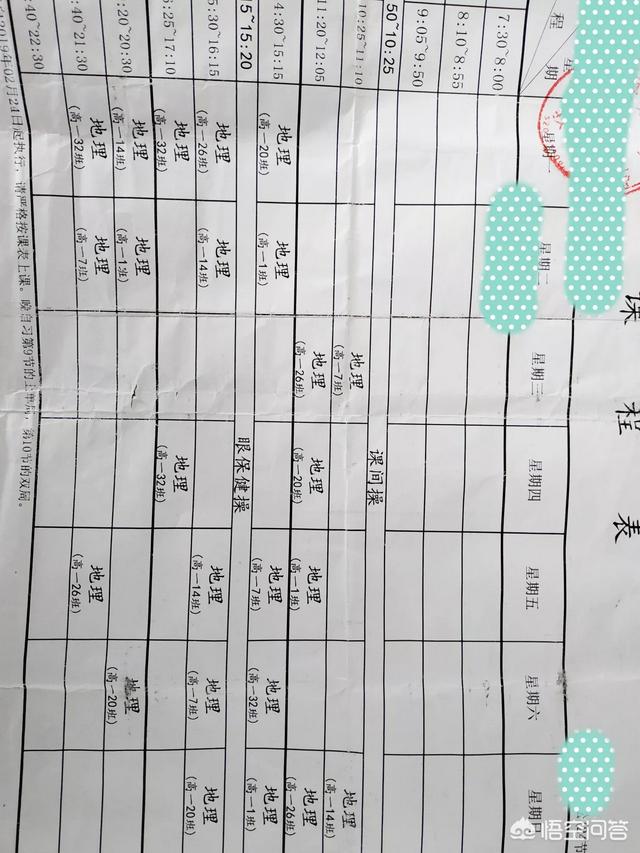 课程表
程 星期 星期一 星期二 星期三 星期四 星期五 星期六 星期日
7:30~8:00
8:10~8:55
9:05~9:50
50~10:25 课间操
10:25~11:10 地理 地理
(高一7班) (高一14班)
11:20~12:05 地理 地理 地理 地理
(高一26班) (高一20班) (高一1班) (高一26班)
4:30~15:15 地理 地理 地理 地理 地理
(高一20班) (高一1班) (高一7班) (高一32班) (高一1班)
5~15:20 眼保健操
5:30~16:15 地理 地理 地理 地理 地理
(高一26班) (高一14班) (高一14班) (高一7班) (高一20班)
:25~17:10 地理 地理
(高一32班) (高一32班)
:20~20:30 地理 地理 地理
(高一14班) (高一1班) (高一20班)
:40~21:30 地理 地理 地理
(高一32班) (高一7班) (高一26班)
:40~22:30
2019年02月24日起执行，请严格按课表上课。晚自习第9节的上单周，第10节的双周。
悟空问答